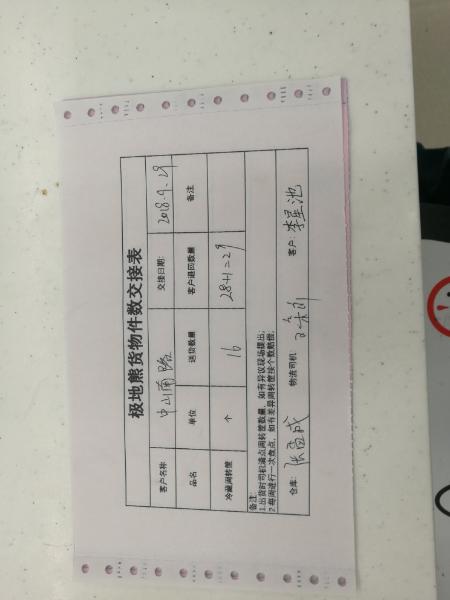 极地熊货物件数交接表
客户名称 中山南路 交接日期: 2018.9.29
品名 单位 送货数量 客户退回数量 备注
冷藏周转筐 个 16 28+1=29
备注:
1.出货时司机清点周转筐数量，如有异议现场提出；
2.每周进行一次盘点，如有差异周转筐按个数赔偿。
仓库: 物流司机: 客户: 李星池